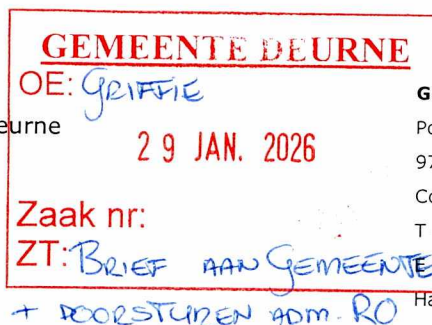 GEMEENTE DEURNE
OE: GRIFFIE
eurne
29 JAN. 2026
Zaak nr:
ZT: BRIEF AAN GEMEENTE
+ DOORSTUREN ADM. RO
G
Po
97
Co
T
E
Ha